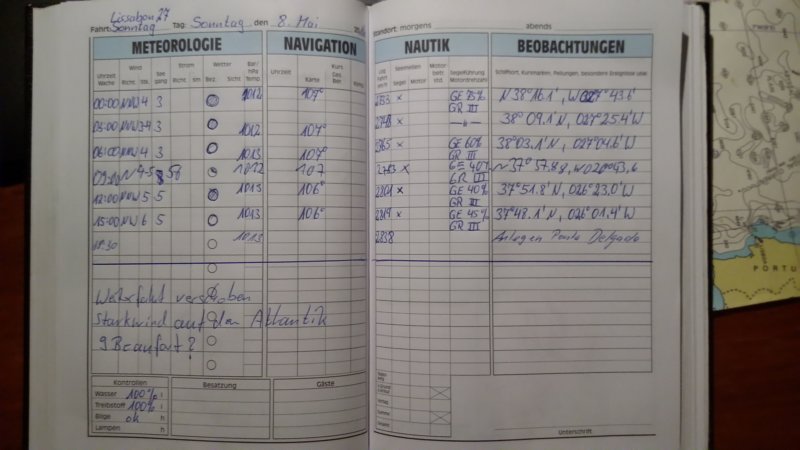 Lissabon 27
Fahrt: Sonntag Tag: Sonntag den 8. Mai
Standort: morgens abends
METEOROLOGIE NAVIGATION NAUTIK BEOBACHTUNGEN
Uhrzeit Wache Wind Richt. Stk. See gang Strom Richt. sm Wetter Bez. Sicht Bar/ hPa Temp. Uhrzeit Karte Kurs Seemeilen Segel Motor Motor betr. std. Segelführung Motordrehzahl Schiffsort, Kursmarken, Peilungen, besondere Ereignisse usw.
00:00 NW 4 3 1012 107° x GE 75% GR III N 38°16.1', W 027°43.6'
03:00 NW 3-4 3 1012 107° 2748 x —„— 38°09.1'N, 027°25.4'W
06:00 NW 4 3 1013 107° x GE 60% GR III 38°03.1'N, 027°04.6'W
09:00 N 4-5 1012 107 x GE 40% GR III
12:00 NW 5 5 1013 106° 2801 x GE 40% GR III 37°51.8'N, 026°23.0'W
15:00 NW 6 5 1013 106° 2819 x GE 45% GR III 37°48.1'N, 026°01.4'W
18:30 1013 2838 Anlegen Ponta Delgada
Weiterfahrt verschoben
Starkwind auf dem Atlantik
9 Beaufort?
Kontrollen Besatzung Gäste
Wasser 100% l
Treibstoff 100% l
Bilge ok h
Lampen: h
Unterschrift:
PORTU